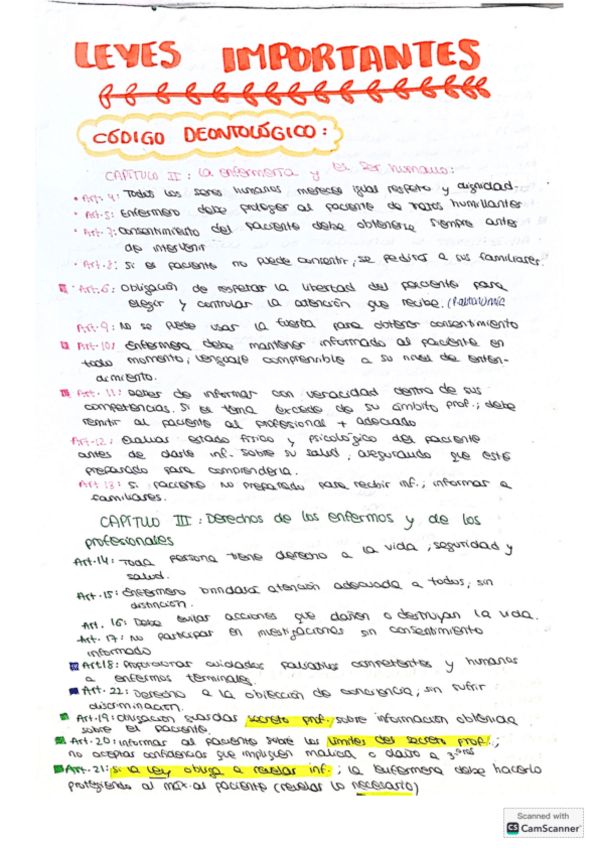 LEYES IMPORTANTES
CÓDIGO DEONTOLÓGICO:
CAPÍTULO II: La enfermería y el ser humano:
• Art. 4: Todos los seres humanos merecen igual respeto y dignidad.
• Art. 5: Enfermero debe proteger al paciente de tratos humillantes
• Art. 7: consentimiento del paciente debe obtenerse siempre antes
de intervenir
• Art. 8: Si el paciente no puede consentir, se pedirá a sus familiares.
Art. 6: obligación de respetar la libertad del paciente para
elegir y controlar la atención que recibe.
Art. 9: No se puede usar la fuerza para obtener consentimiento
Art. 10: Enfermera debe mantener informado al paciente en
todo momento, lenguaje comprensible a su nivel de enten-
dimiento.
Art. 11: deber de informar con veracidad dentro de sus
competencias. Si el tema excede de su ámbito prof.; debe
remitir al paciente al profesional + adecuado
Art. 12: Evaluar estado físico y psicológico del paciente
antes de darle inf. sobre su salud, asegurando que esté
preparado para comprenderla.
Art 13: Si paciente no preparado para recibir inf.; informar a
familiares.
CAPÍTULO III: Derechos de los enfermos y de los
profesionales
Art. 14: Toda persona tiene derecho a la vida, seguridad y
salud.
Art. 15: Enfermero brindará atención adecuada a todos, sin
distinción.
Art. 16: Debe evitar acciones que dañen o destruyan la vida.
Art. 17: No participar en investigaciones sin consentimiento
informado
Art 18: Proporcionar cuidados paliativos competentes y humanos
a enfermos terminales.
Art. 22: Derecho a la objeción de conciencia, sin sufrir
discriminación.
Art. 19: Obligación guardar secreto prof. sobre información obtenida
sobre el paciente.
Art. 20: Informar al paciente sobre los límites del secreto prof.;
no aceptar confidencias que impliquen malicia o daño a 3ºros
Art. 21: si la Ley obliga a revelar inf.; la enfermera debe hacerlo
protegiendo al máx. al paciente (revelar lo necesario)
Scanned with
CS CamScanner